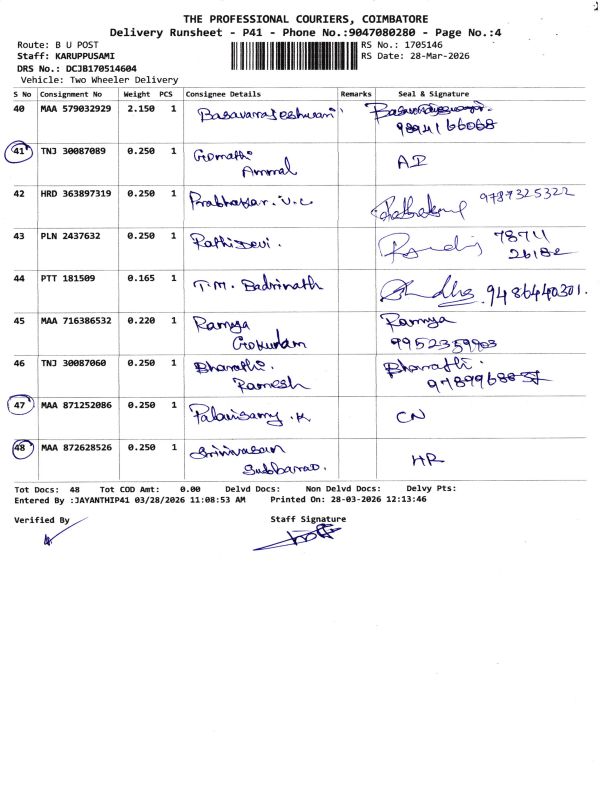 THE PROFESSIONAL COURIERS, COIMBATORE
Delivery Runsheet - P41 - Phone No.:9047080280 - Page No.:4
Route: B U POST RS No.: 1705146
Staff: KARUPPUSAMI RS Date: 28-Mar-2026
DRS No.: DCJB170514604
Vehicle: Two Wheeler Delivery
S No Consignment No Weight PCS Consignee Details Remarks Seal & Signature
40 MAA 579032929 2.150 1 Basavarajeshwari
41 TNJ 30087089 0.250 1 Gomathi AI
Ammal
42 HRD 363897319 0.250 1 Prabhakar. V.C 9787325322
43 PLN 2437632 0.250 1 Rathidevi. 78711
26182
44 PTT 181509 0.165 1 T.M. Badrinath 9486440301.
45 MAA 716386532 0.220 1 Ramya Ramya
Gokundam 9952359903
46 TNJ 30087060 0.250 1 Bharathi. Bharathi.
Ramesh
47 MAA 871252086 0.250 1 Palanisamy .K CN
48 MAA 872628526 0.250 1 Srinivasan HR
Subbarao.
Tot Docs: 48 Tot COD Amt: 0.00 Delvd Docs: Non Delvd Docs: Delvy Pts:
Entered By :JAYANTHIP41 03/28/2026 11:08:53 AM Printed On: 28-03-2026 12:13:46
Verified By Staff Signature